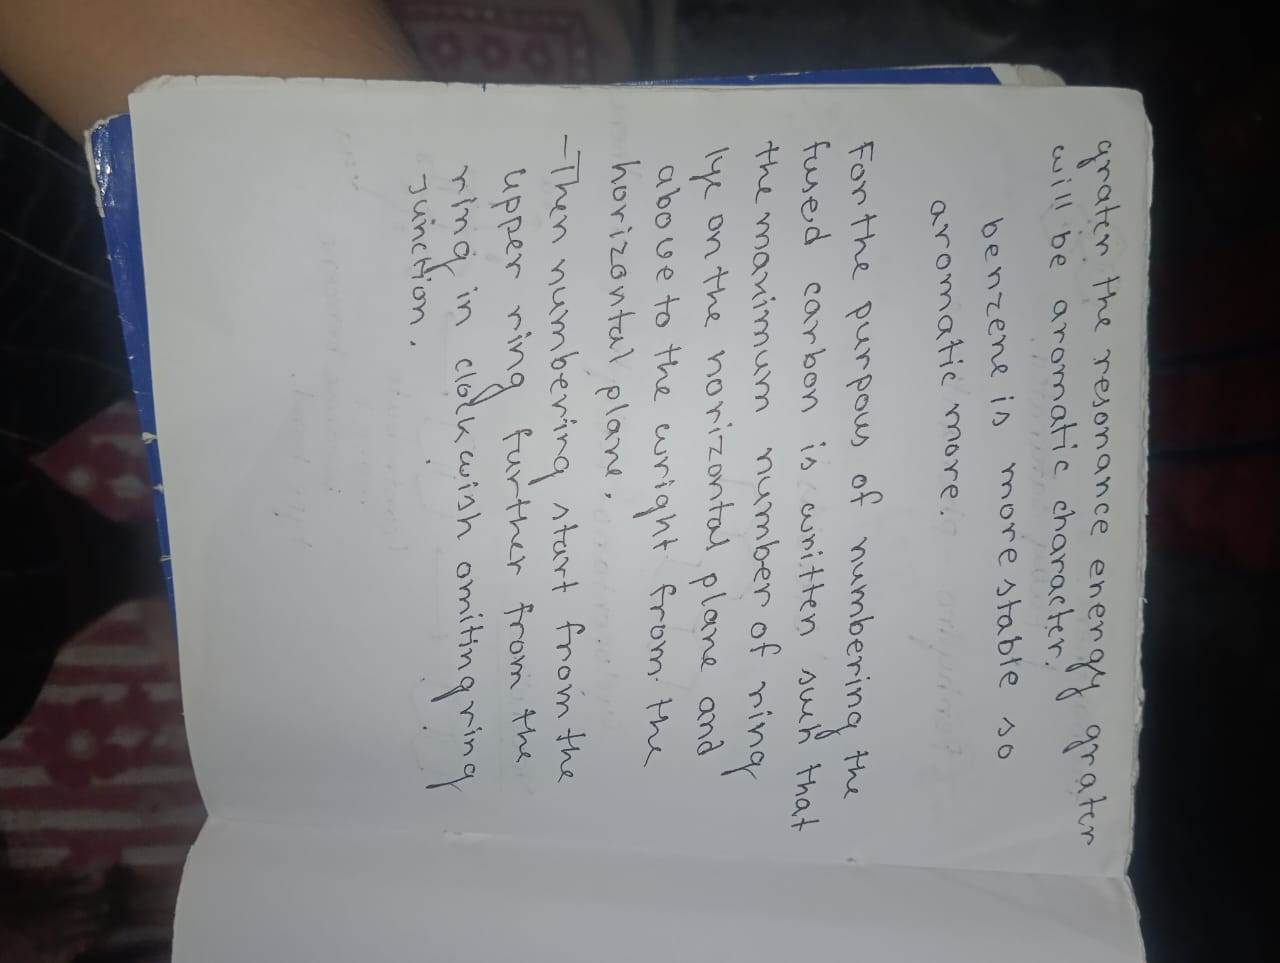 grater the resonance energy grater
will be aromatic character.
benzene is more stable so
aromatic more.
For the purpous of numbering the
fused carbon is written such that
the maximum number of ring
lye on the horizontal plane and
above to the wright from the
horizontal plane.
-Then numbering start from the
upper ring further from the
ring in clockwish omiting ring
Juinction.